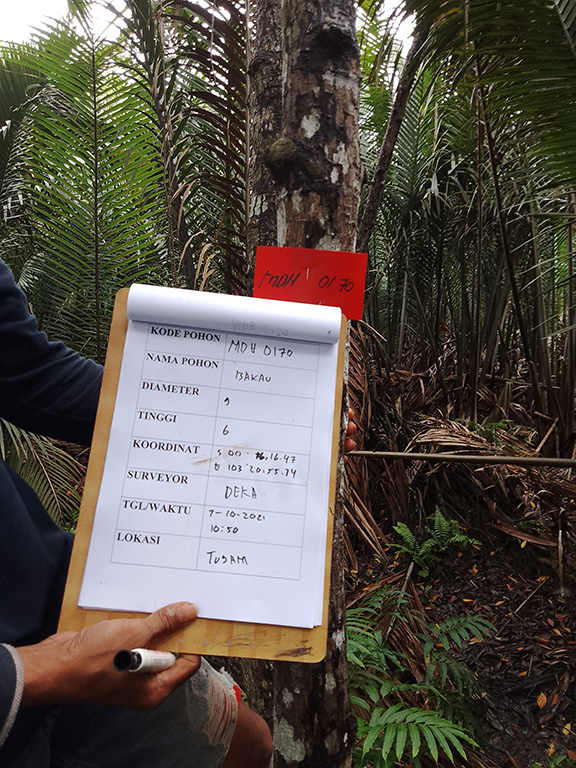 MDH 0170
KODE POHON MDH 0170
NAMA POHON BAKAU
DIAMETER 9
TINGGI 6
KOORDINAT S 00 16.47
E 103.20.55.74
SURVEYOR DEKA
TGL/WAKTU 7-10-2021
10:50
LOKASI TUJAM